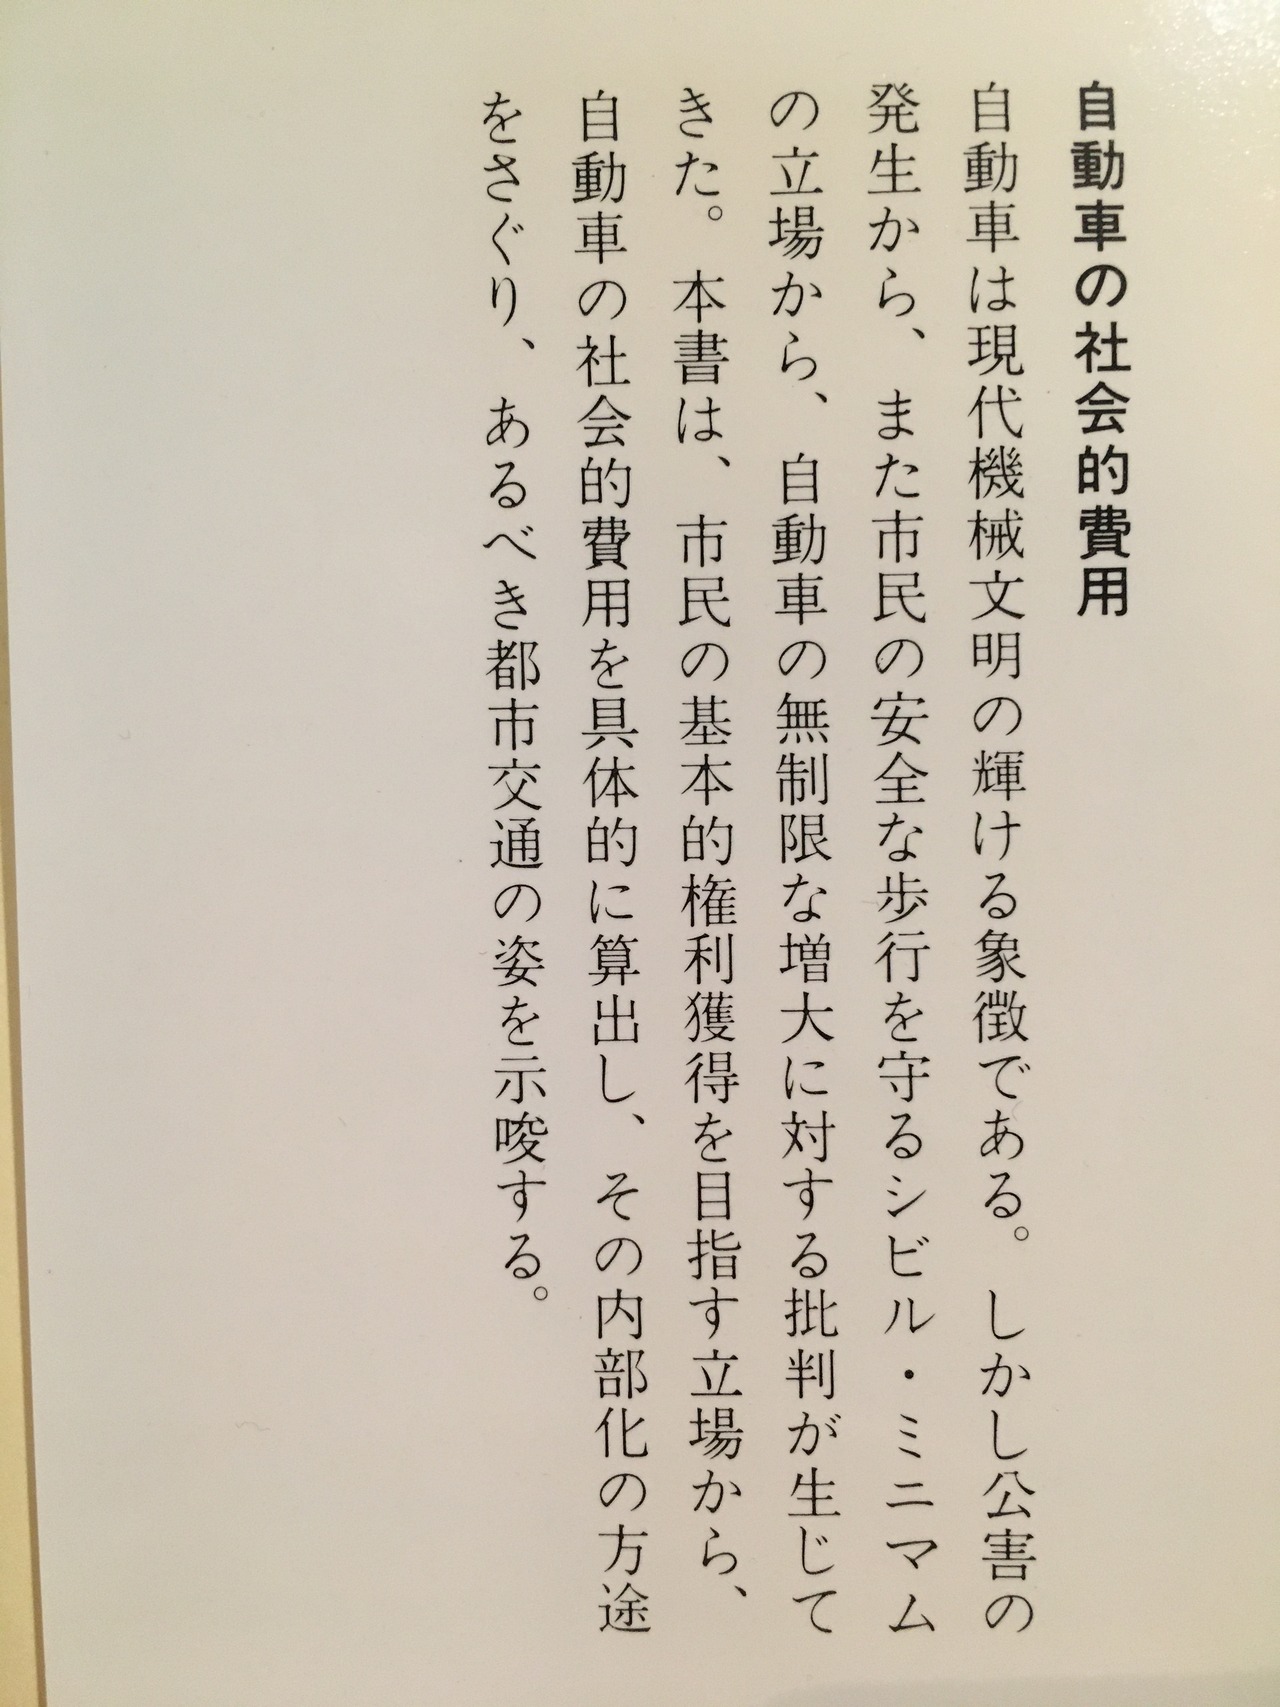 自動車の社会的費用
自動車は現代機械文明の輝ける象徴である。しかし公害の
発生から、また市民の安全な歩行を守るシビル・ミニマム
の立場から、自動車の無制限な増大に対する批判が生じて
きた。本書は、市民の基本的権利獲得を目指す立場から、
自動車の社会的費用を具体的に算出し、その内部化の方途
をさぐり、あるべき都市交通の姿を示唆する。